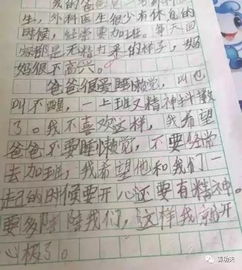 生，外科医生很少有休息的
时候，经常要加班。每天回
家都是无精打采的样子，妈
妈很不高兴。
爸爸很爱睡懒觉，叫也
叫不醒，一上班又精神抖擞
了。我不喜欢这样，我希望
爸爸不要睡懒觉，不要经常
去加班，我希望他和我们一
起的时候要开心还要有精神。
要多陪陪我们，这样我就开
心极了。